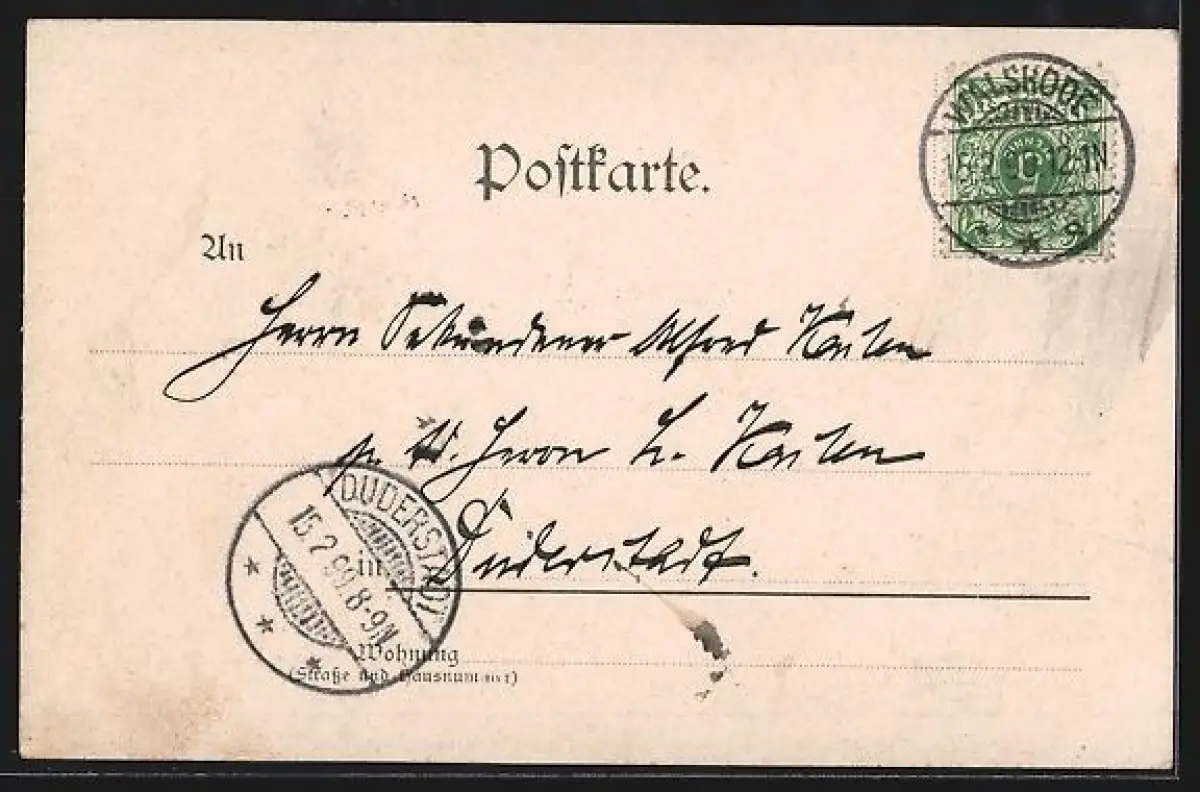 WALSRODE
15.2.99 12-1N
Postkarte.
An
Herrn Sekundaner Alfred
Herrn L.
in Duderstadt.
DUDERSTADT
15.2.99. 8-9N
Wohnung
(Straße und Hausnummer)